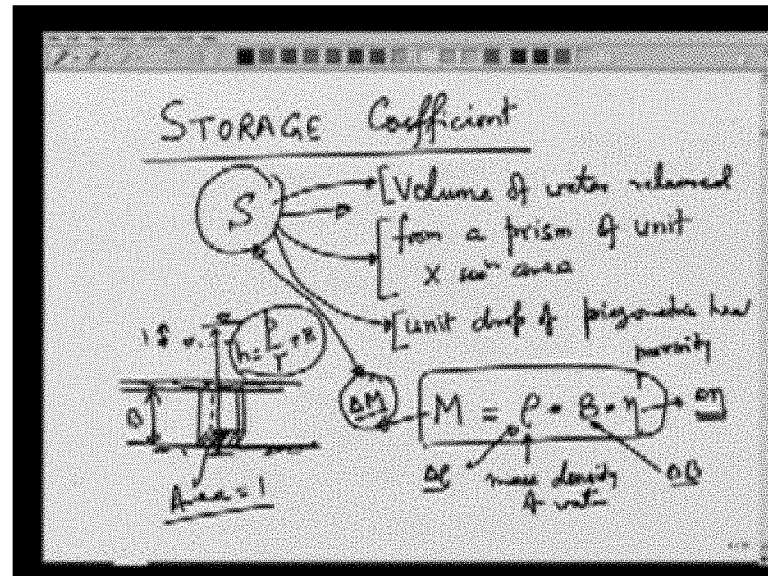 STORAGE Coefficient
S
[Volume of water released
[from a prism of unit
X secⁿ area
[unit drop of piezometric head
porosity
h = p/γ + z
ΔM
M = ρ * B * η
Δη
B
Δρ
mass density
of water
ΔB
Area = 1